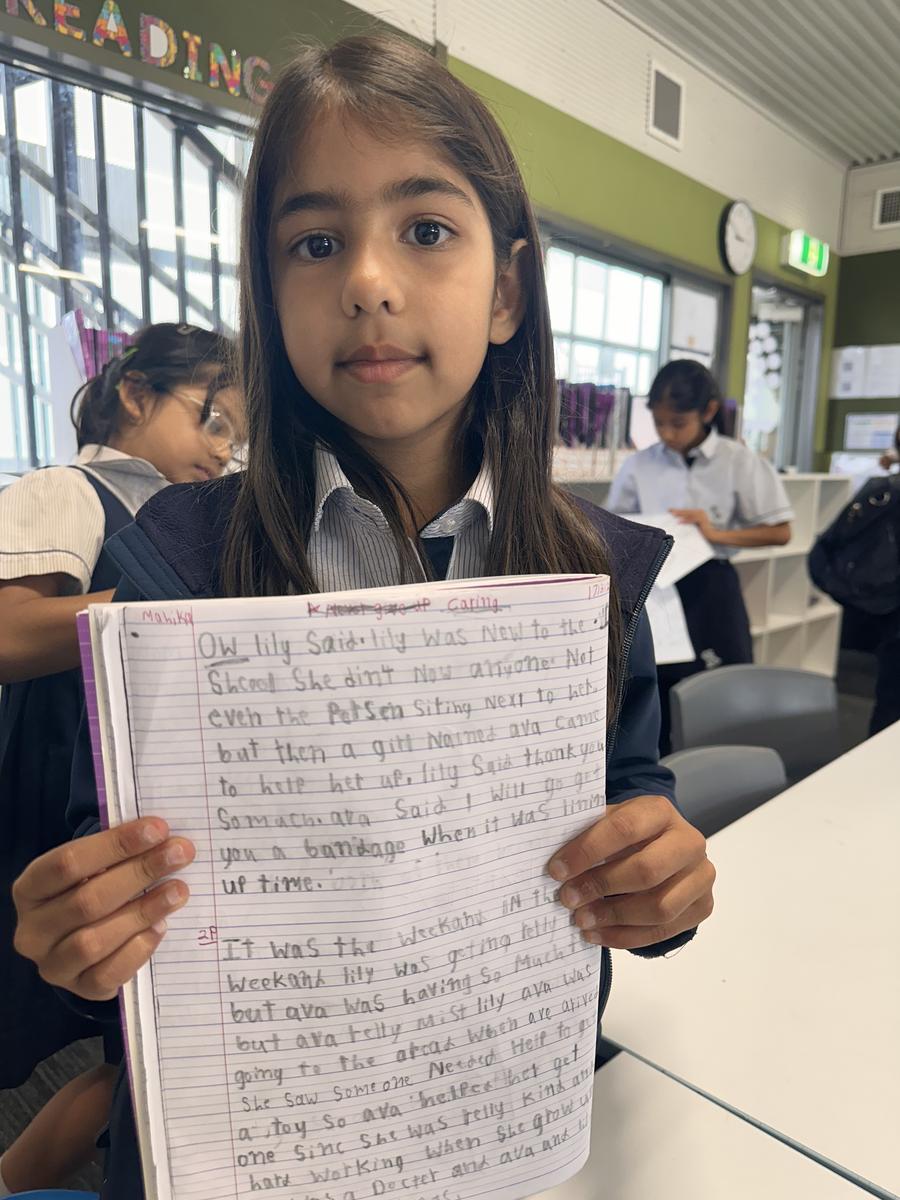 READING
Mahika
Never gave up Caring
OW lily Said. lily was New to the
Shcool She din't Now anyone. Not
even the Persen Siting Next to her.
but then a girl Named ava came
to help her up. lily Said thank you
Somach. ava Said I will go get
you a bandage when it was lining
up time.
2P
It was the Weekand IN the
Weekand lily was geting relly
but ava was having So Much
but ava relly mist lily ava was
going to the arcad When are arive
She saw someone Needed Help to
a toy So ava helped her get
one Sinc She was relly Kind an
hard Working When She grow u
a Docter and ava and